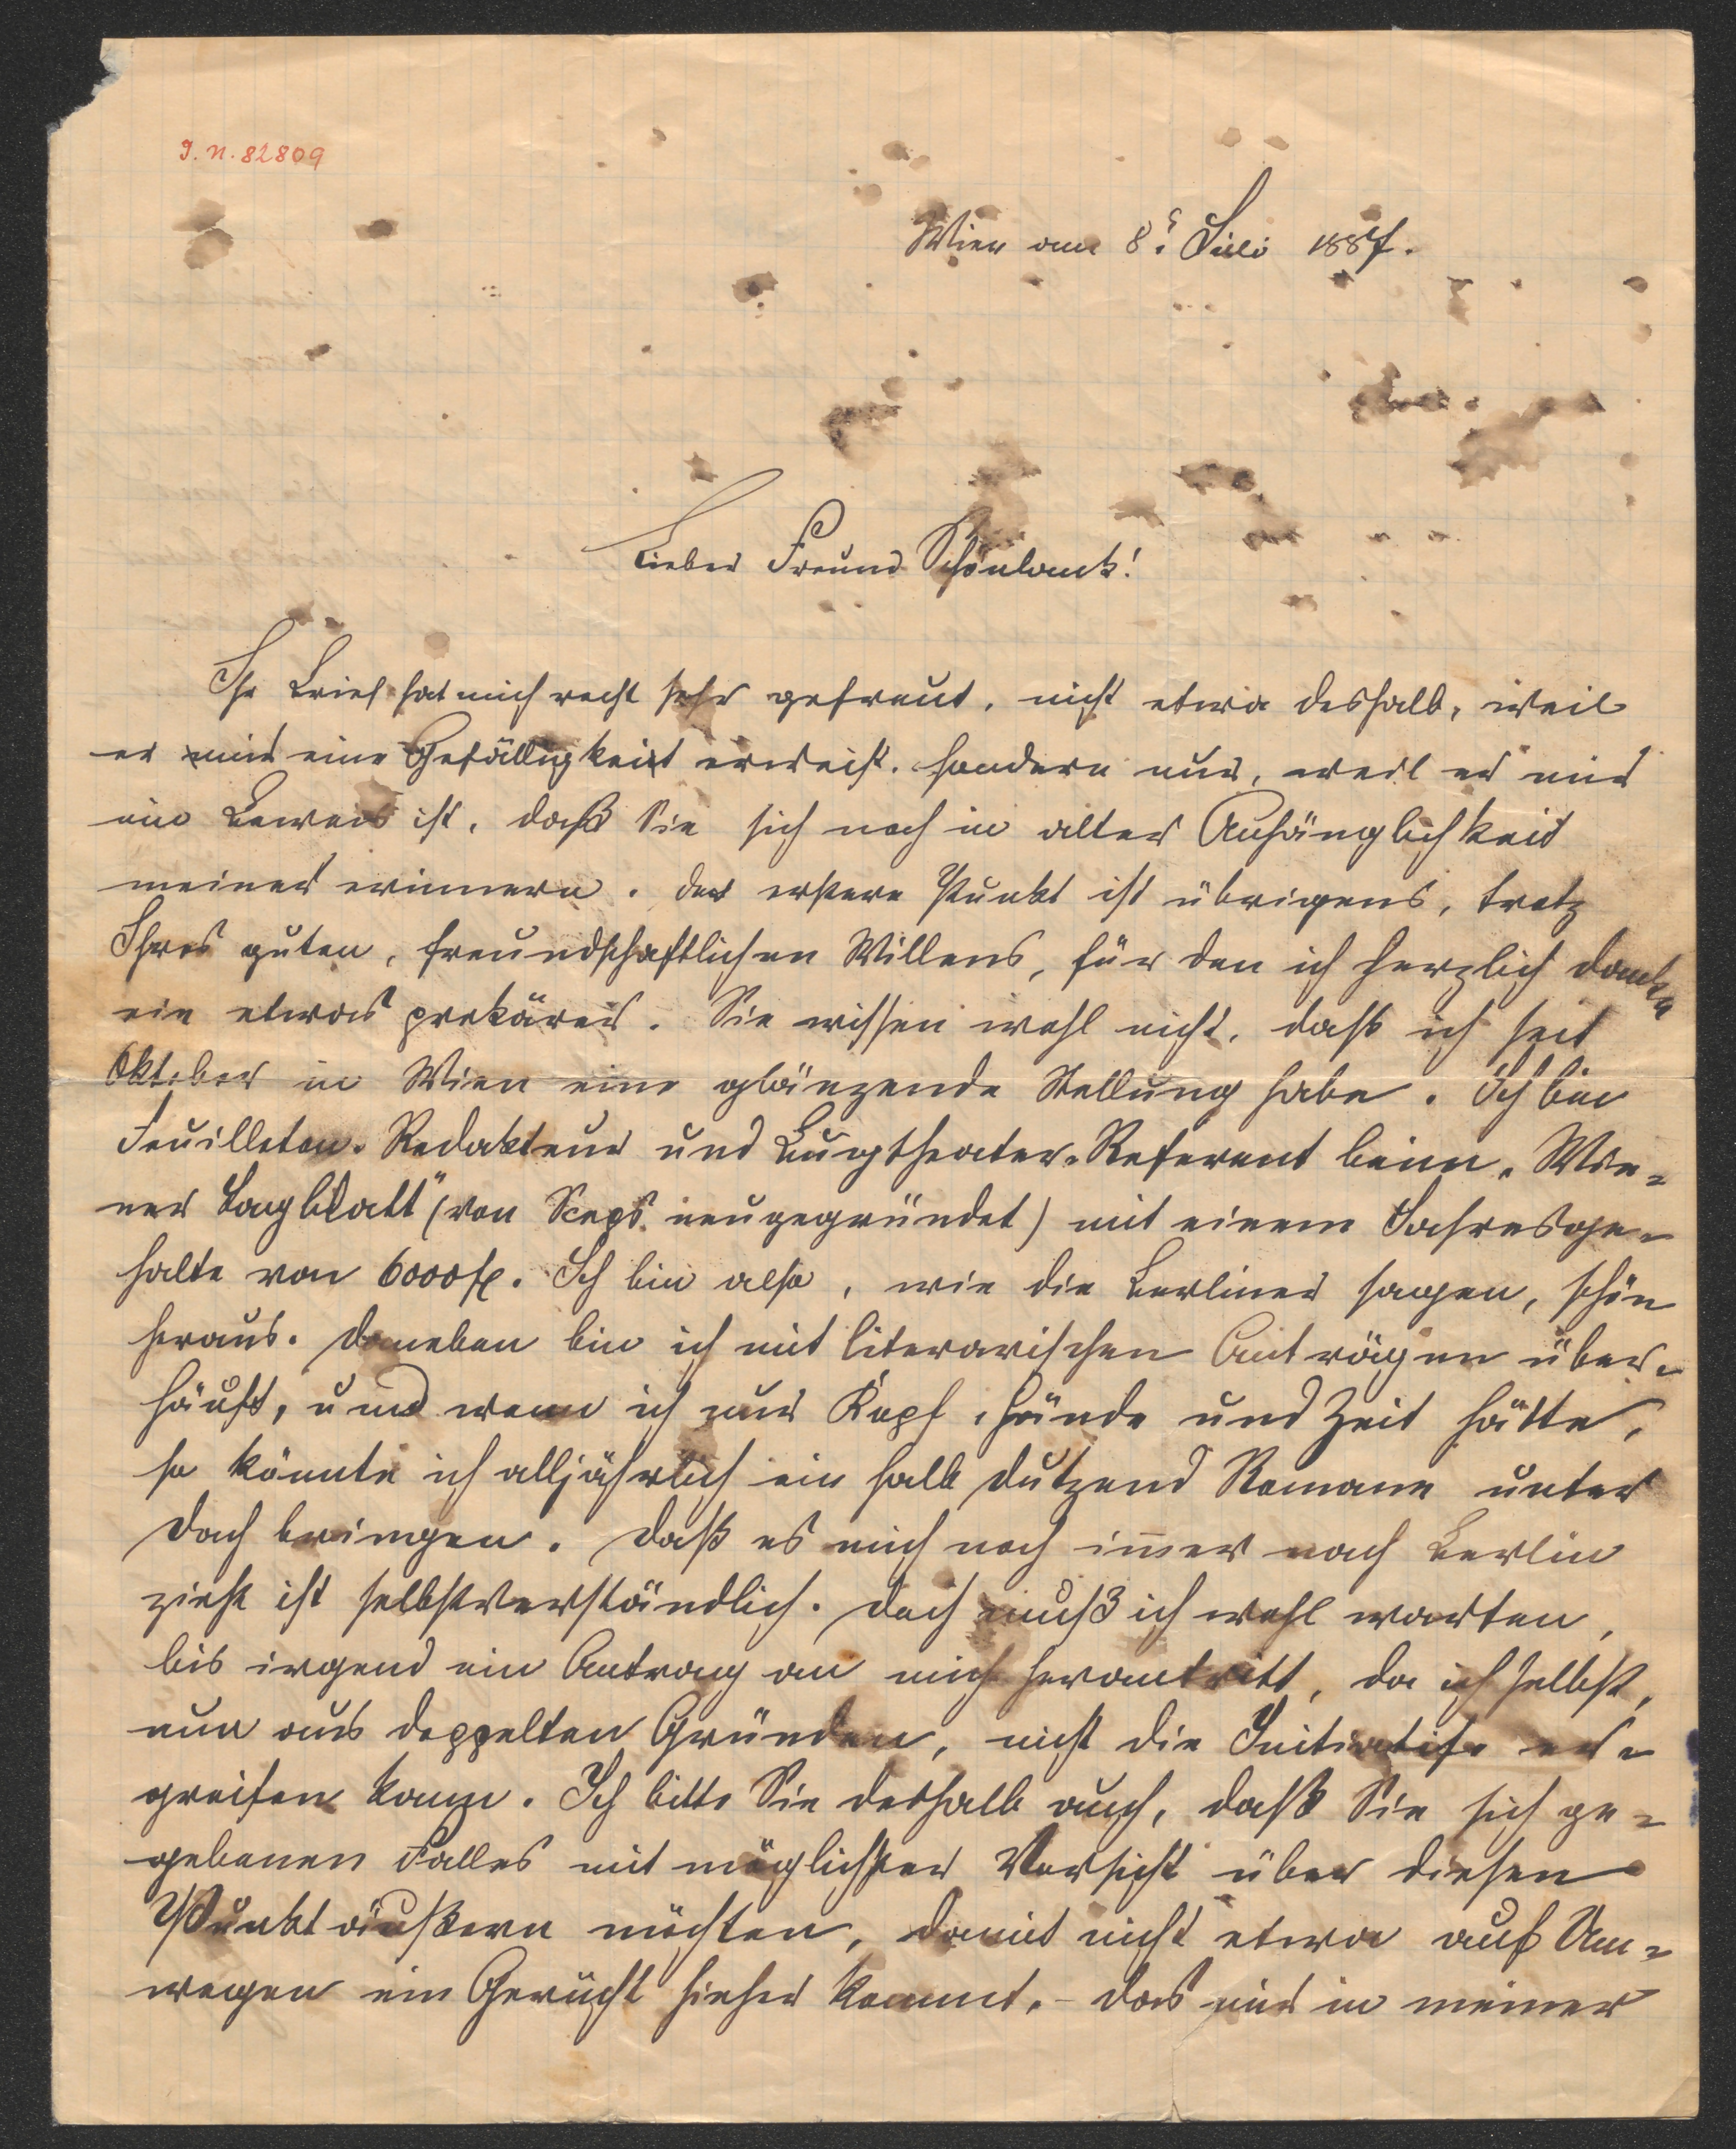 I. N. 82809
Wien am 8. Juli 1887.
Lieber Freund Schönlank!
Ihr Brief hat mich recht sehr gefreut, nicht etwa deshalb, weil
er mir eine Gefälligkeit erweist, sondern nur, weil er mir
ein Beweis ist, daß Sie sich noch in alter Anhänglichkeit
meiner erinnern. Der erstere Punkt ist übrigens, trotz
Ihres guten, freundschaftlichen Willens, für den ich herzlich danke
ein etwas prekärer. Sie wissen wohl nicht, daß ich seit
Oktober in Wien eine glänzende Stellung habe. Ich bin
Feuilleton-Redakteur und Burgtheater-Referent beim „Wie-
ner Tagblatt" (von Szeps neugegründet) mit einem Jahresge-
halte von 6000 fl. Ich bin also, wie die Berliner sagen, schön
heraus. Daneben bin ich mit literarischen Anträgen über-
häuft, und wenn ich nur Kopf, Hände und Zeit hätte,
so könnte ich alljährlich ein halb Dutzend Romane unter
Dach bringen. Daß es mich noch im̅er nach Berlin
zieht ist selbstverständlich. Doch muß ich wohl warten,
bis irgend ein Antrag an mich herantritt, da ich selbst,
nun aus doppelten Gründen, nicht die Initiatife er-
greifen kann. Ich bitte Sie deshalb auch, daß Sie sich ge-
gebenen Falles mit möglichster Vorsicht über diesen
Punkt äußern möchten, damit nicht etwa auf Um-
wegen ein Gerücht hieher kommt, – das mir in meiner